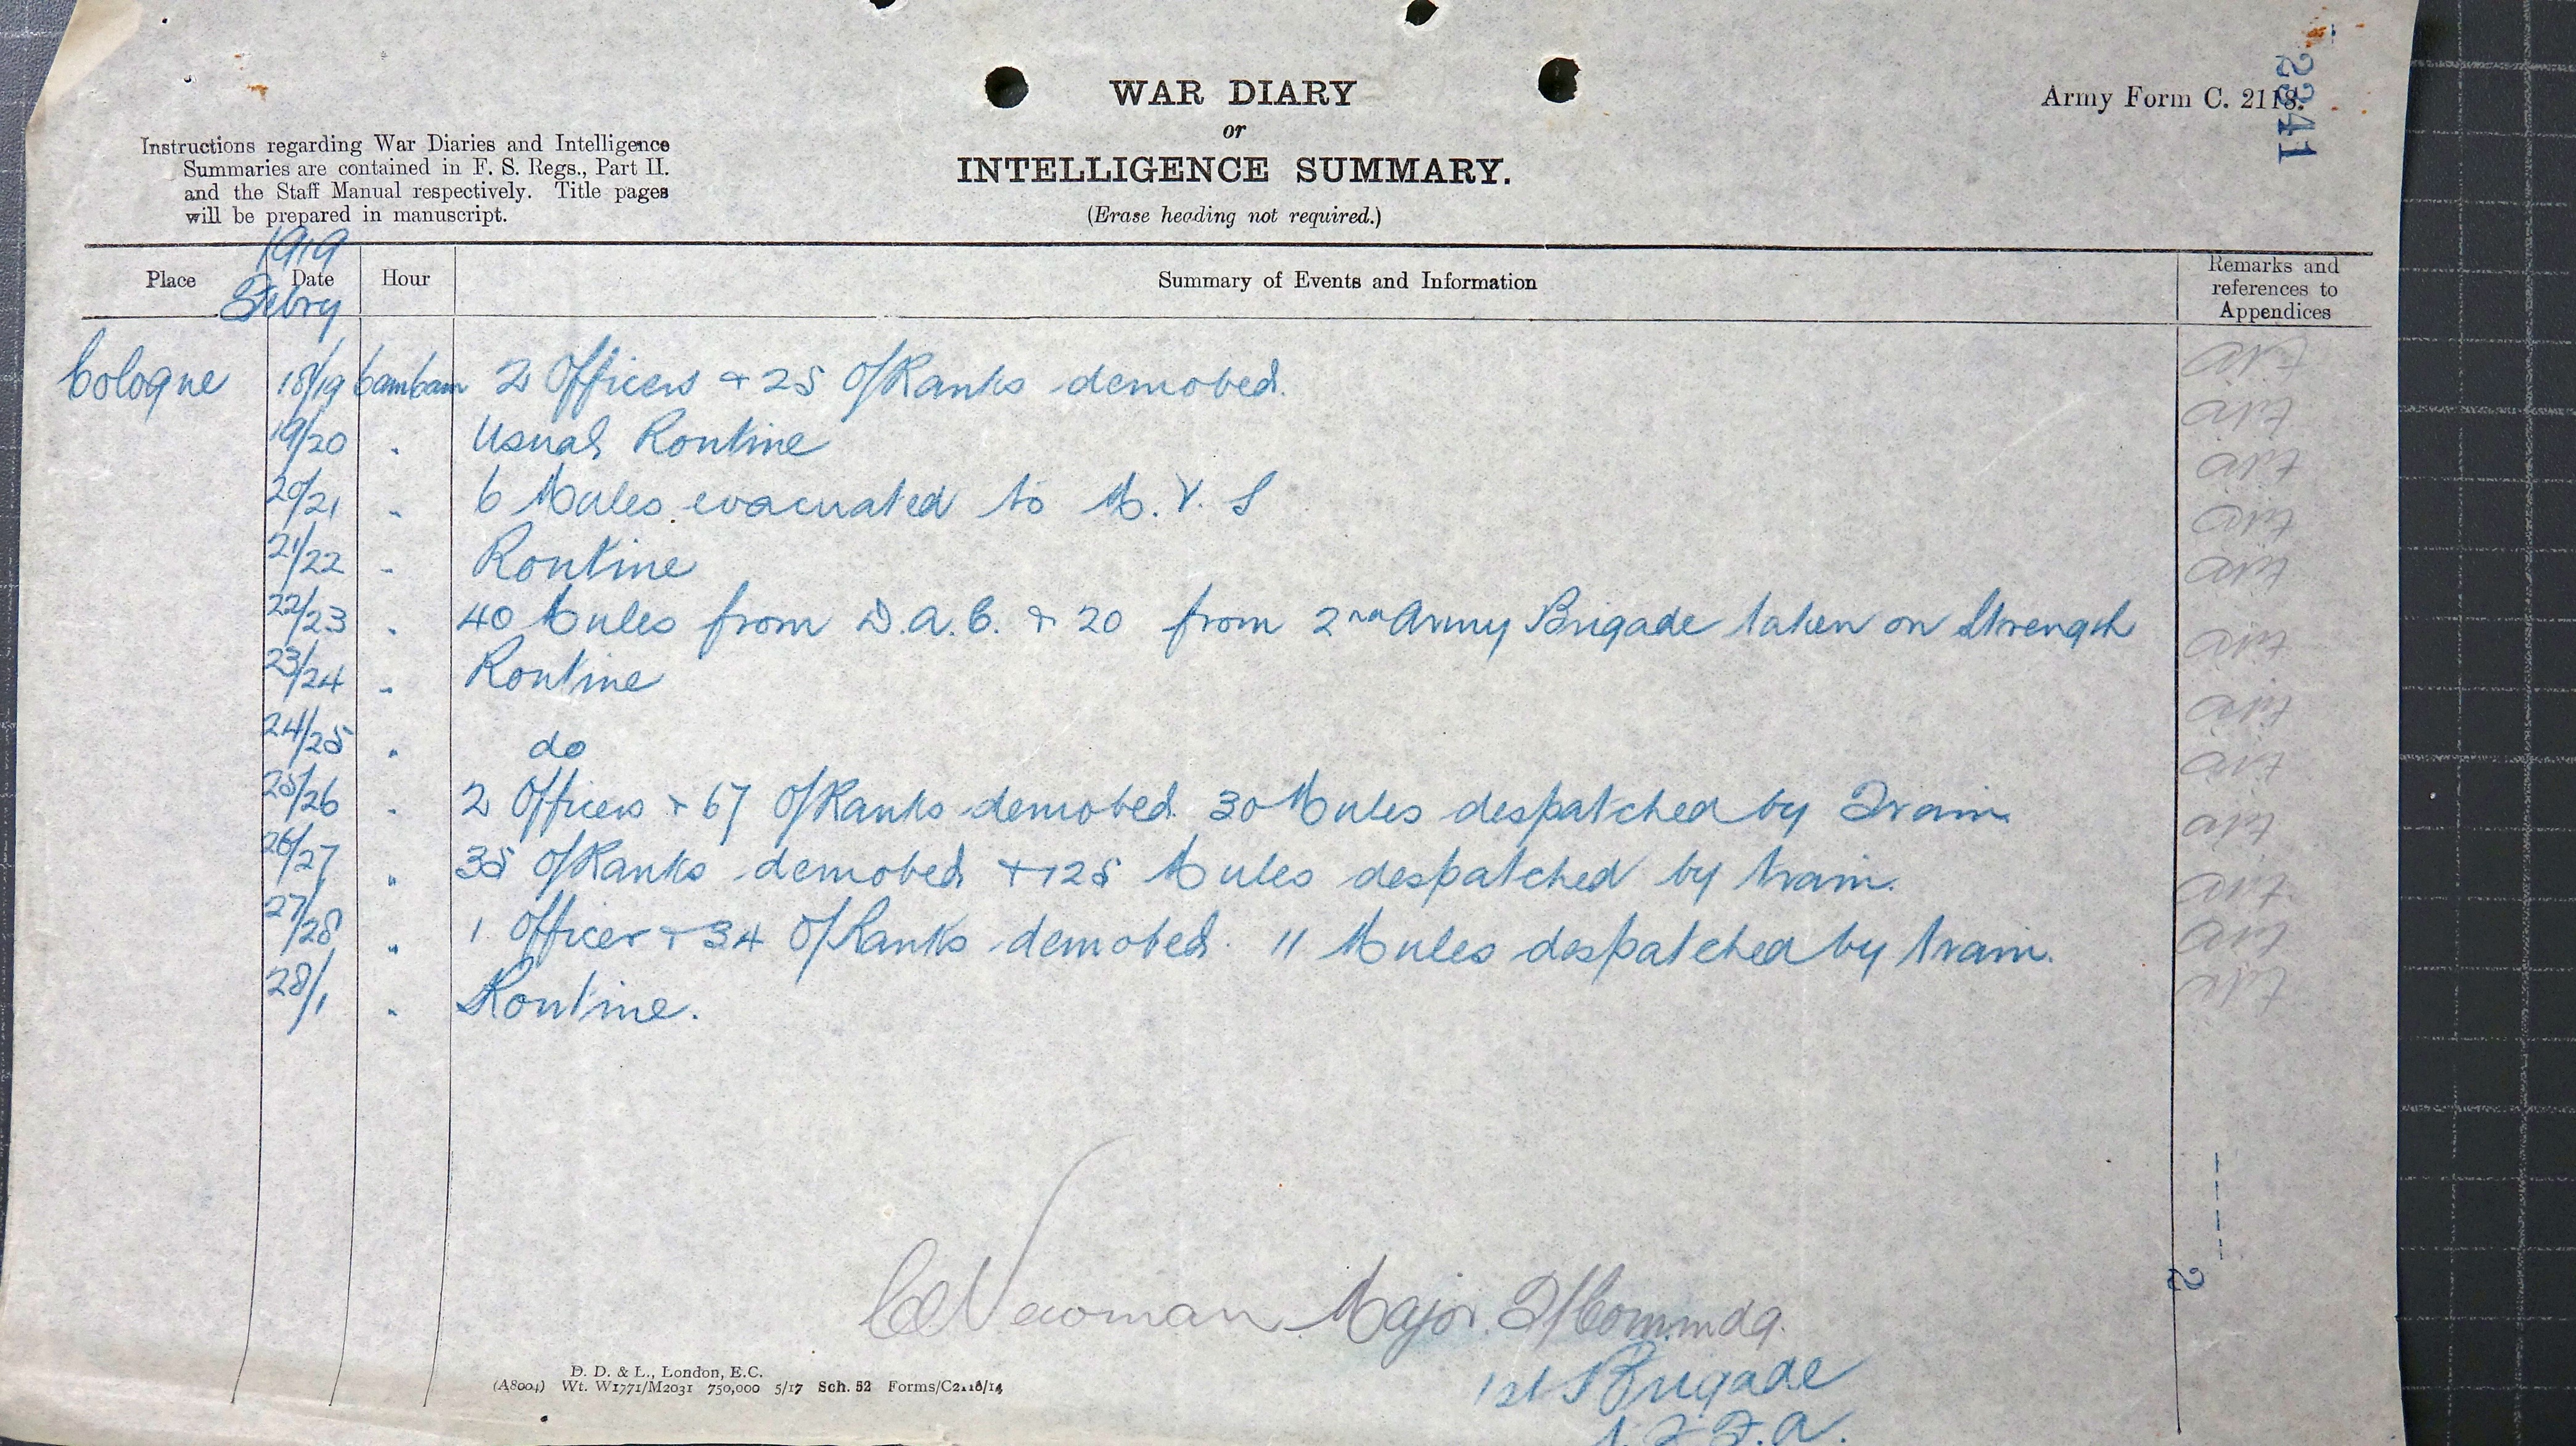 WAR DIARY
or
INTELLIGENCE SUMMARY.
(Erase heading not required.)
Army Form C. 2118.
2341
Instructions regarding War Diaries and Intelligence
Summaries are contained in F. S. Regs., Part II.
and the Staff Manual respectively. Title pages
will be prepared in manuscript.
1919
Place Date Hour Summary of Events and Information Remarks and references to Appendices
Febry
Cologne 18/19 6am6am 2 Officers + 25 O/Ranks demobed.
19/20 " Usual Routine
20/21 " 6 Mules evacuated to M. V. S
21/22 " Routine
22/23 " 40 Mules from D.A.C. + 20 from 2nd Army Brigade taken on Strength
23/24 " Routine
24/25 " do
25/26 " 2 Officers + 67 O/Ranks demobed. 30 Mules despatched by Train
26/27 " 35 O/Ranks demobed + 125 Mules despatched by train.
27/28 " 1 Officer + 34 O/Ranks demobed. 11 Mules despatched by train.
28/1 " Routine.
2
Newman Major. Commdg.
1st Brigade
N.Z.F.A.
D. D. & L., London, E.C.
(A8004) Wt. W1771/M2031 750,000 5/17 Sch. 52 Forms/C2118/14